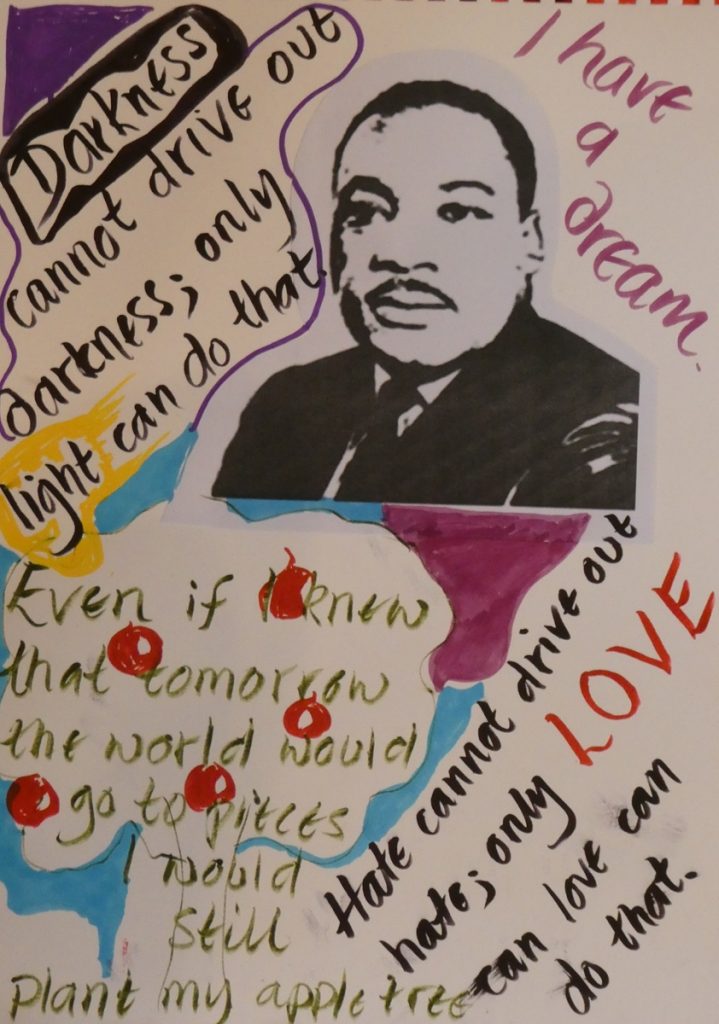 Darkness
cannot drive out
darkness; only
light can do that.
I have
a
dream.
Even if I knew
that tomorrow
the world would
go to pieces
I would
still
plant my apple tree
Hate cannot drive out
hate; only LOVE
can love can
do that.